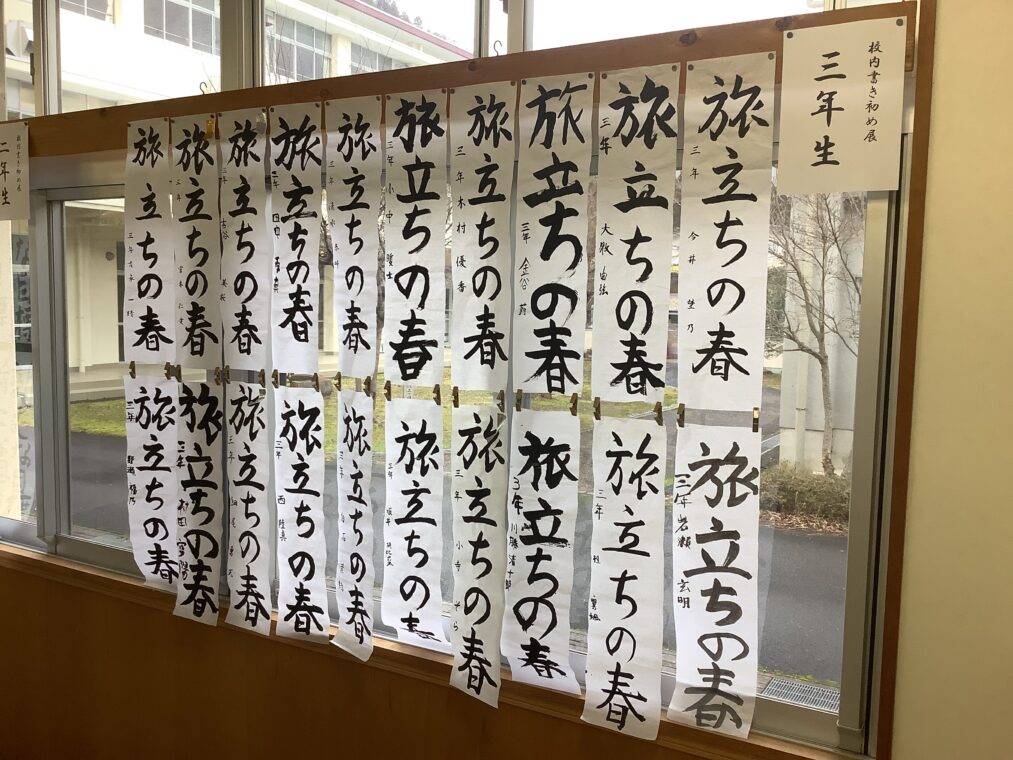 校内書き初め展
三年生
旅立ちの春
三年 今井 埜乃
旅立ちの春
三年 大敷 由紘
旅立ちの春
三年 金谷
旅立ちの春
三年 木村優香
旅立ちの春
三年 小中
旅立ちの春
三年
旅立ちの春
三年
旅立ちの春
三年 古谷
旅立ちの春
三年
旅立ちの春
三年
旅立ちの春
三年 岩瀬 玄明
旅立ちの春
三年
旅立ちの春
3年 川勝清十郎
旅立ちの春
三年 小寺 そら
旅立ちの春
三年 坂井
旅立ちの春
三年
旅立ちの春
三年 西 陸真
旅立ちの春
三年
旅立ちの春
三年 和田
旅立ちの春
三年
校内書き初め展
二年生